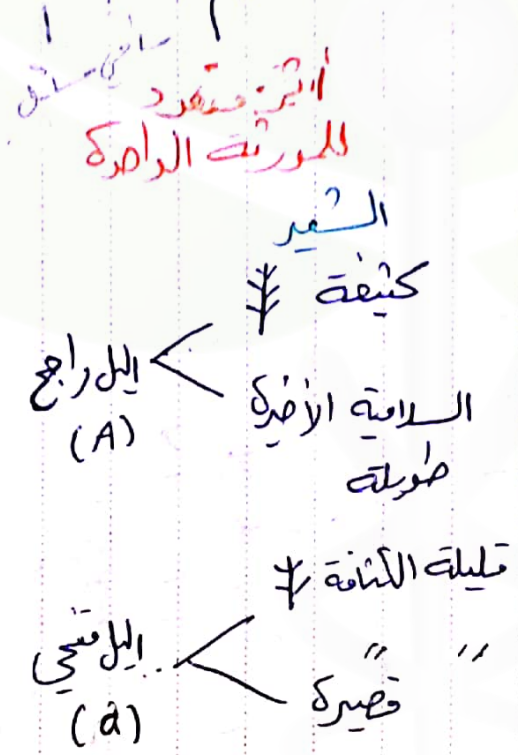 أثر متعدد
للمورثة الواحدة
الشعير
كثيفة
أليل راجح
(A)
السلامية الأخيرة
طويلة
قليلة الكثافة
أليل متنحي
(a)
" "
قصيرة